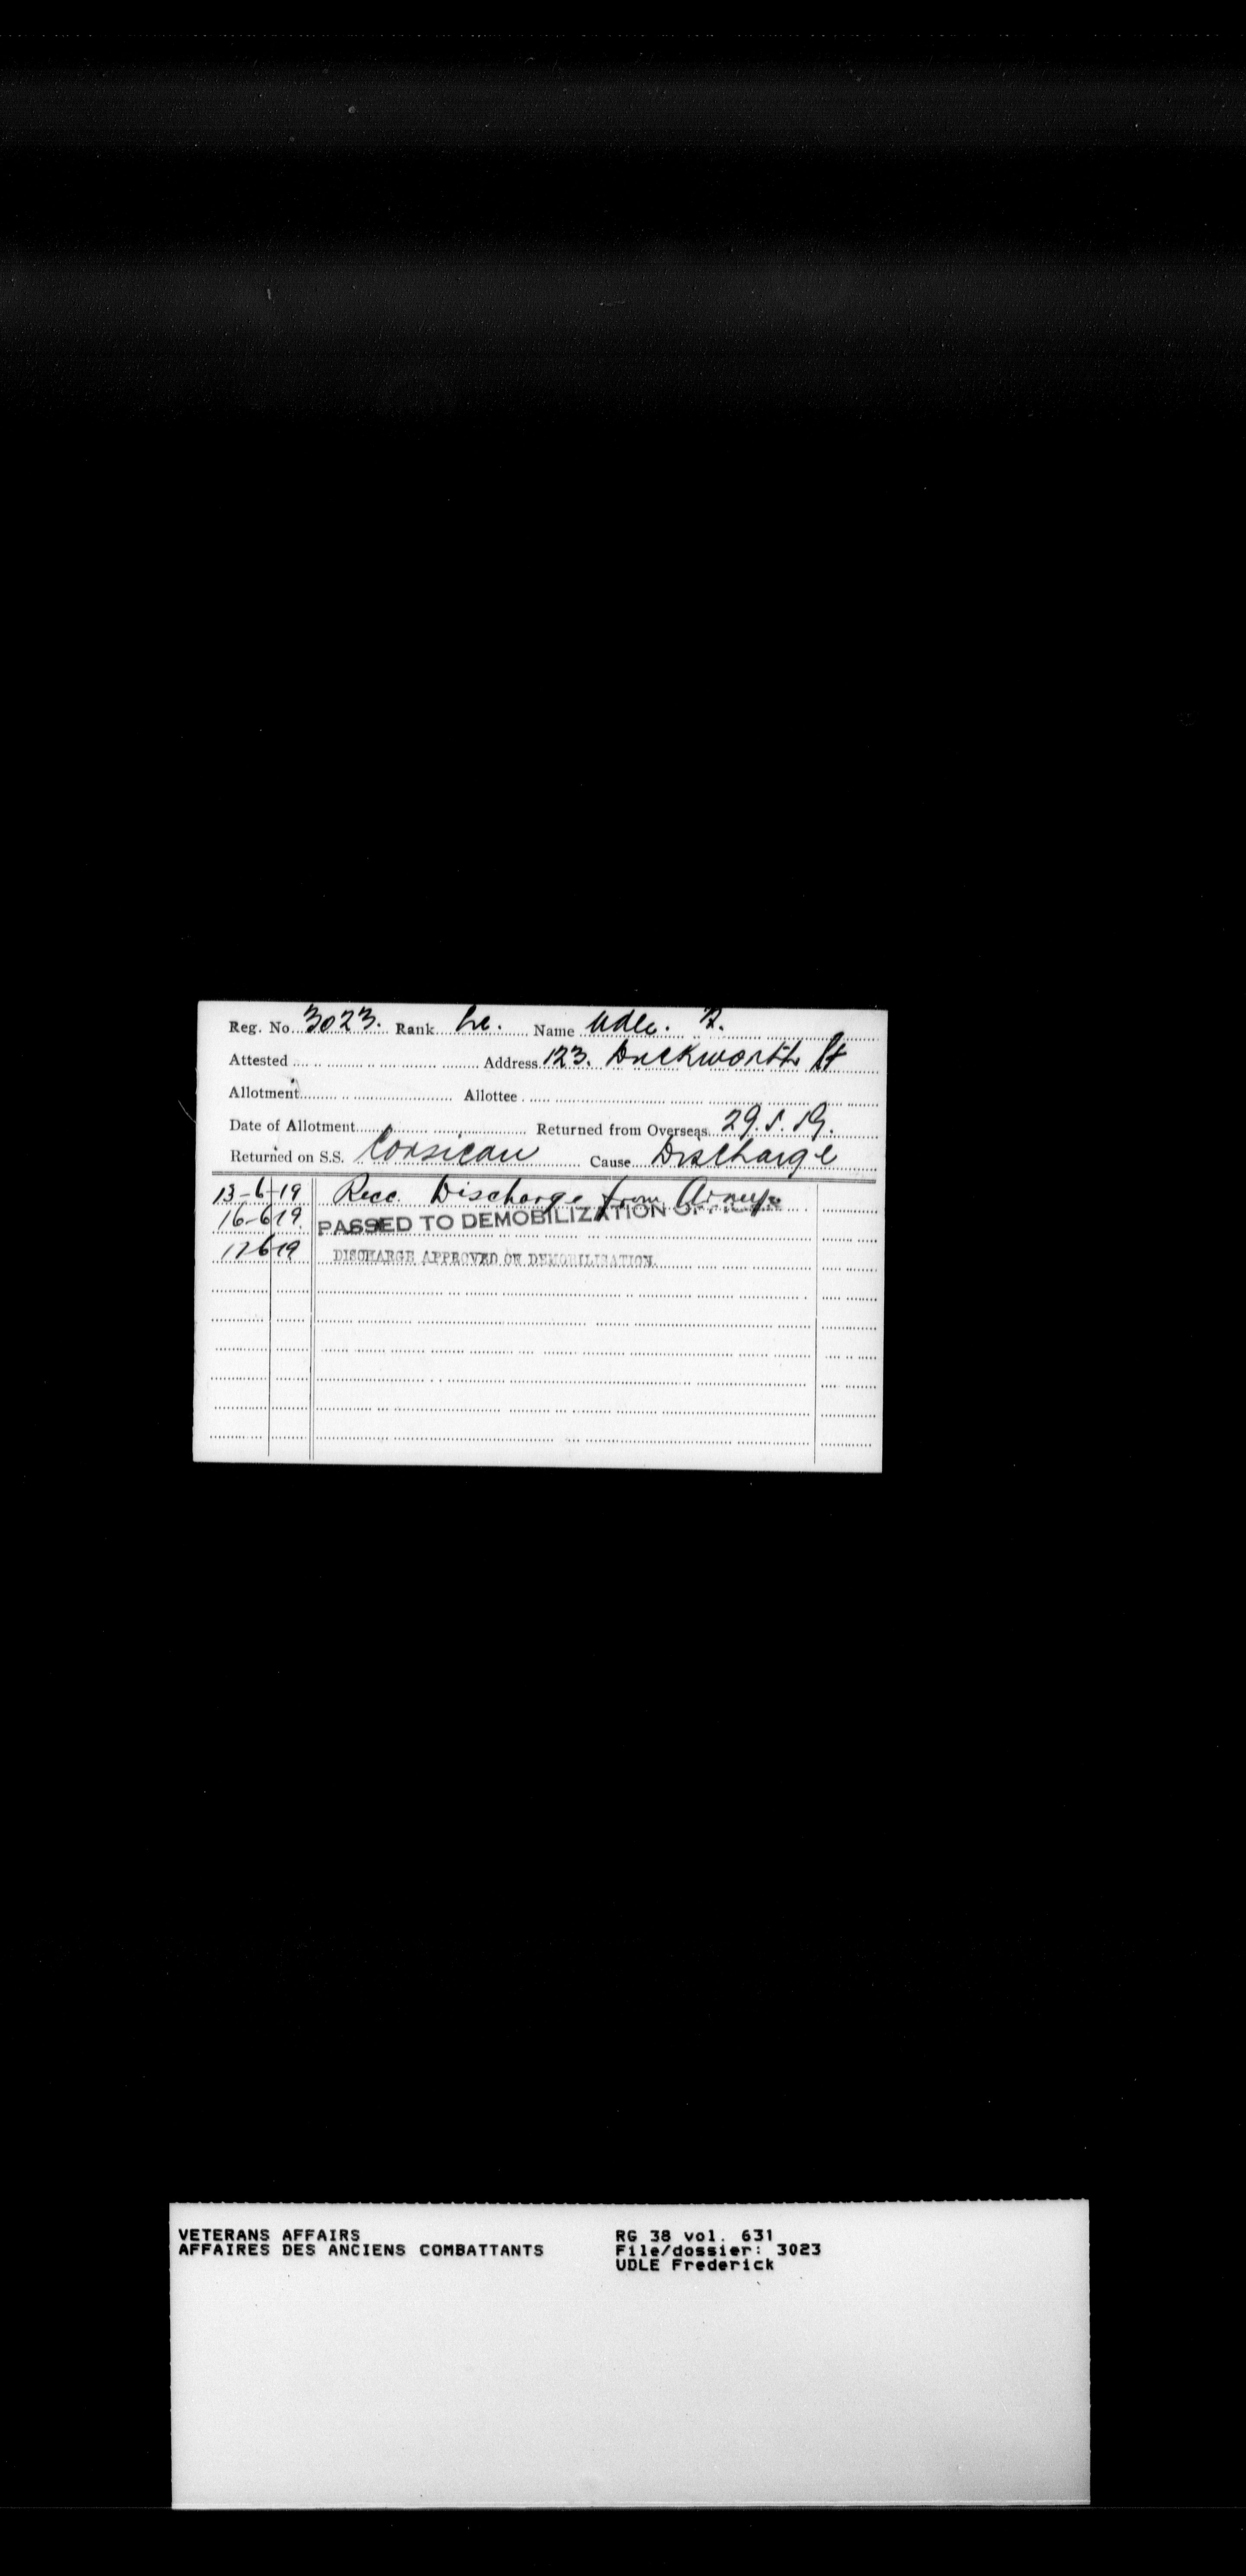 Reg. No. 3023. Rank Pte. Name Udle. F.
Attested Address 123. Duckworth St
Allotment Allottee
Date of Allotment Returned from Overseas 29.5.19.
Returned on S.S. Corsican Cause Discharge
13-6-19 Recc. Discharge from Army
16-6-19. PASSED TO DEMOBILIZATION OFFICER
17-6-19 DISCHARGE APPROVED ON DEMOBILISATION.
VETERANS AFFAIRS RG 38 vol. 631
AFFAIRES DES ANCIENS COMBATTANTS File/dossier: 3023
UDLE Frederick